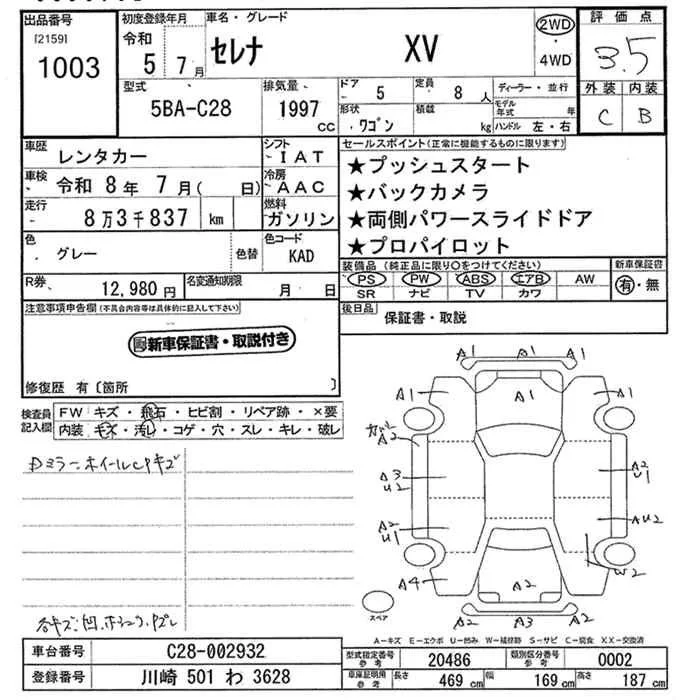 出品番号 初度登録年月 車名・グレード 評価点
[2159] 令和 2WD
1003 5年 7月 セレナ XV ・ 3.5
4WD
型式 排気量 ドア 定員 ディーラー・並行 外装 内装
5BA-C28 1997 cc 5 8人 モデル年式 年 C B
形状 ワゴン 積載 kg ハンドル 左・右
車歴 レンタカー シフト IAT セールスポイント(正常に機能するものに限ります)
車検 令和 8年 7月( 日) 冷房 AAC ★プッシュスタート
走行 8万3千837 km 燃料 ガソリン ★バックカメラ
色 グレー 色替 色コード KAD ★両側パワースライドドア
★プロパイロット
R券 12,980円 名変通知期限 月 日 装備品(純正品に限り○をつけてください) 新車保証書
PS PW ABS エアB AW 有・無
SR ナビ TV カワ
注意事項申告欄(不具合内容等は具体的に記入して下さい) 後日品 保証書・取説
新車保証書・取説付き
修復歴 有〔箇所 〕
検査員記入欄 FW キズ・飛石・ヒビ割・リペア跡・×要
内装 キズ・汚レ・コゲ・穴・スレ・キレ・破レ
ミラー・ホイールCPキズ
A1 A1 A1
A1 A1
A2
A3 A2
U2 U1
A2 AU2
U1
W2
A4 A2
A2 A3 A2
スペア
A-キズ E-エクボ U-凹み W-補修跡 S-サビ C-腐食 XX-交換済
車台番号 C28-002932 型式指定番号 参考 20486 類別区分番号 参考 0002
登録番号 川崎 501 わ 3628 車庫証明用 参考 長さ 469 cm 幅 169 cm 高さ 187 cm